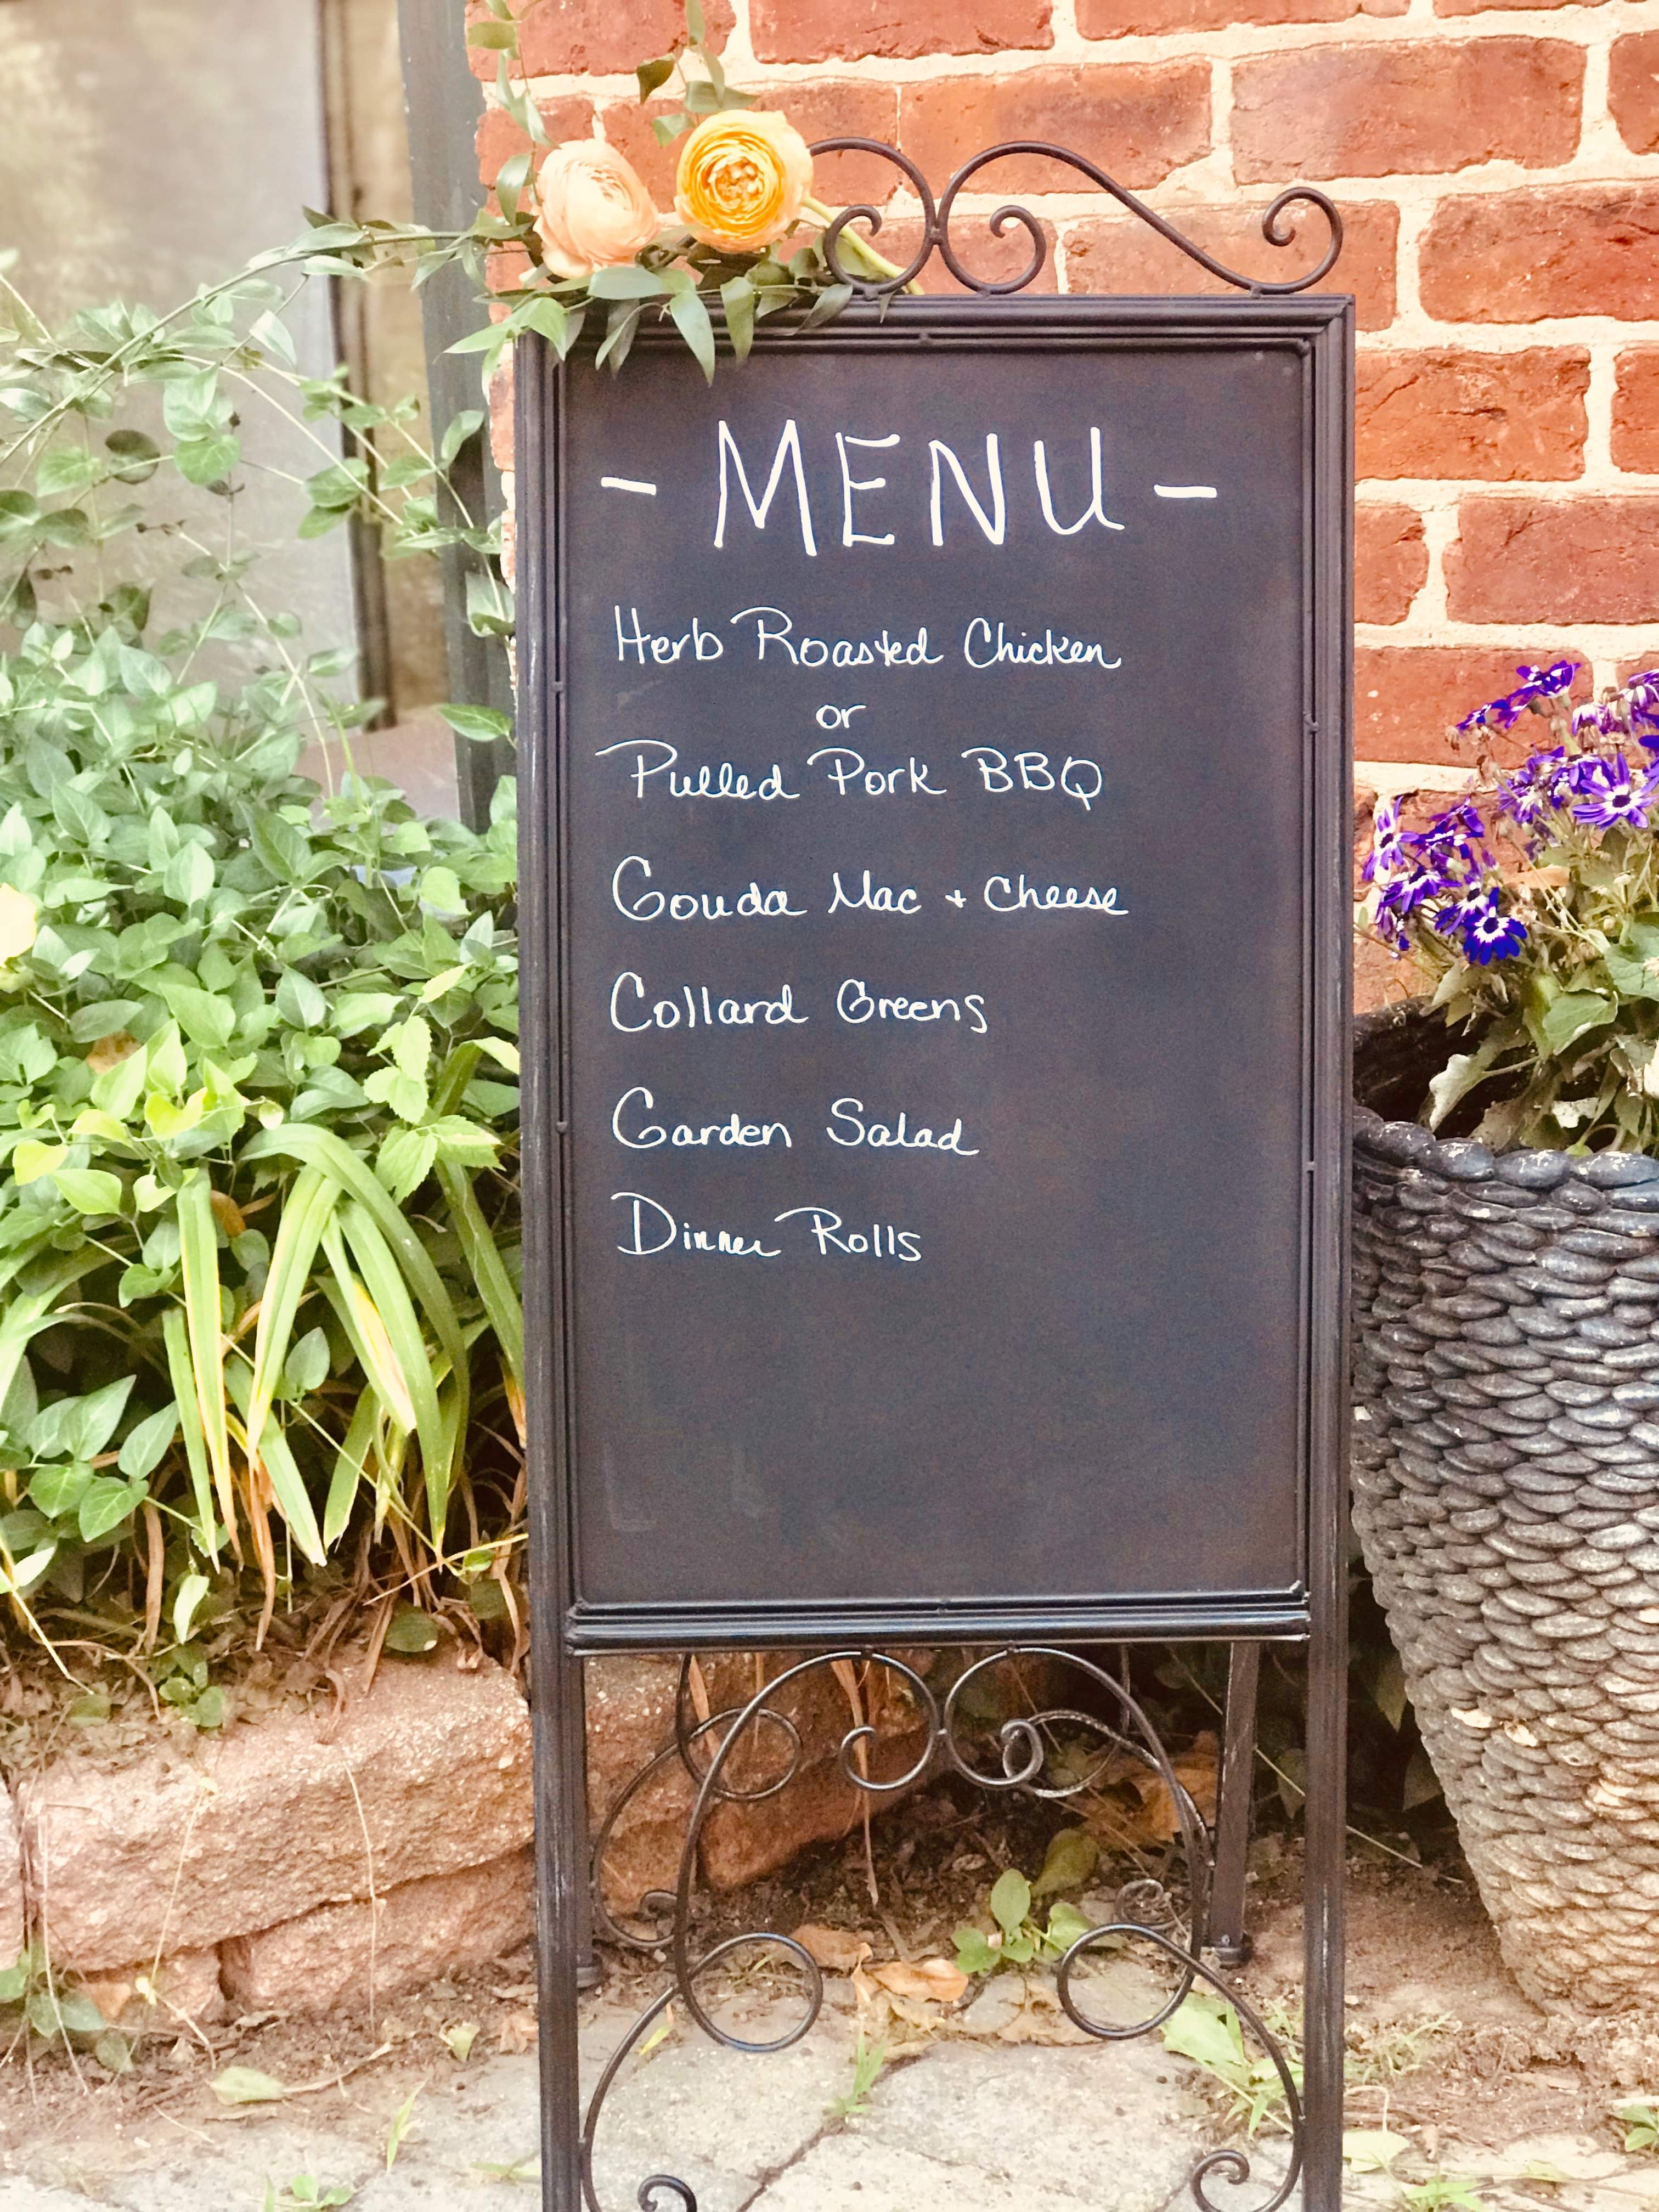 - MENU -
Herb Roasted Chicken
or
Pulled Pork BBQ
Gouda Mac + Cheese
Collard Greens
Garden Salad
Dinner Rolls